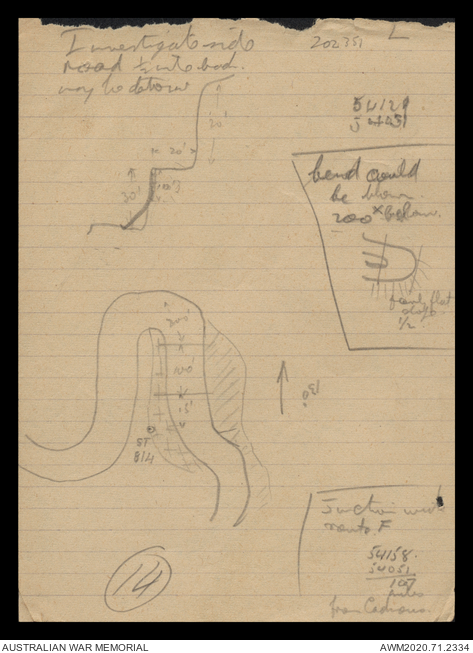 I investigate side
road ½ mile back.
may be detour
202751
L
54129
54431
30'
20'
30'
10'
bend could
be blown
200ˣ below.
fairly flat
slope
1/2
200'
100'
15'
130°
ST
8/4
Junction with
route F
54158.
54051
107
miles
from
14
AUSTRALIAN WAR MEMORIAL
AWM2020.71.2334